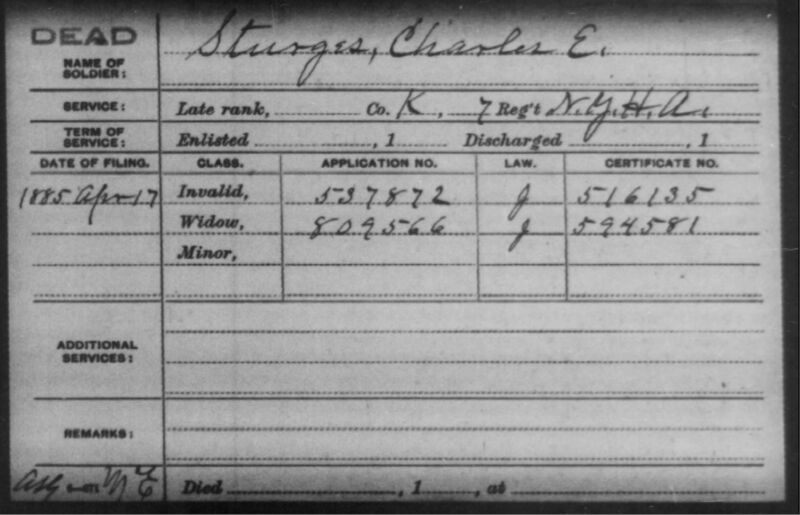 DEAD
NAME OF SOLDIER: Sturges, Charles E.
SERVICE: Late rank, Co. K, 7 Reg't N.Y.H.A.
TERM OF SERVICE: Enlisted , 1 Discharged , 1
DATE OF FILING. CLASS. APPLICATION NO. LAW. CERTIFICATE NO.
1885 Apr 17 Invalid, 537872 J 516135
Widow, 809566 J 594581
Minor,
ADDITIONAL SERVICES:
REMARKS:
Died , 1 , at